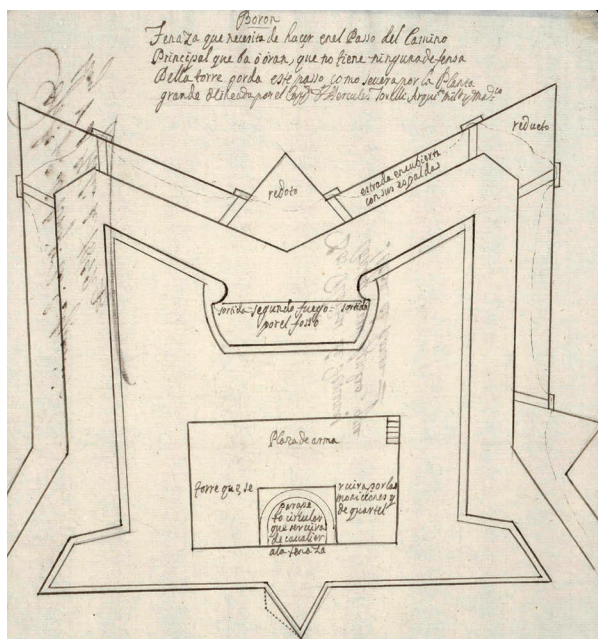 Boron
Tenaza que necesita de haçer en el Passo del Camino
Principal que ba ó óran, que no tiene ninguna defensa
Della torre gorda este passo como severa por la Planta
grande Hercules Torelli
reducto
redoto
estrada encubierta
con sus espaldas
sortida segundo fuego = sortida
por el fosso
Plaza de arma
torre que, se
rvira por las
moniciones y
de quartel
parape
to circular
que servira
de cavalier
a la tenaza